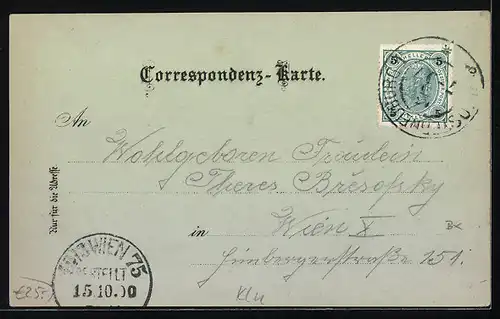 Correspondenz-Karte.
An
Wohlgeboren Fräulein
Theres Bresofsky
in Wien X
Himbergerstraße 151.
Nur für die Adresse.
WIEN 75
BESTELLT
15.10.00